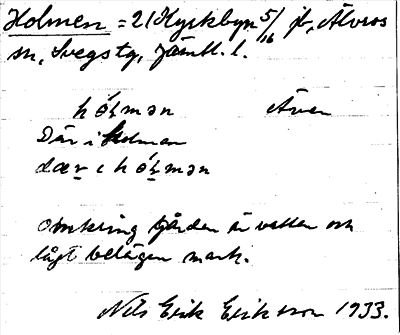 Holmen = 2/ Kyrkbyn 5/16 jb, Älvros
sn, Svegs tg, Jämtl. l.
hɷ́l̥mən Även
Där i Holman
dær ı hɷ́l̥mən
Omkring gården är vatten och
lågt belägen mark.
Nils Erik Eriksson 1933.